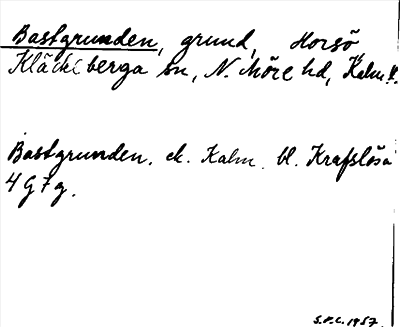 Bastgrunden, grund, Horsö,
Kläckeberga sn, N. Möre hd, Kalm. l.
Bastgrunden. ek. Kalm. bl. Krafslösa
4 G 7 g.
S.F.L. 1957.